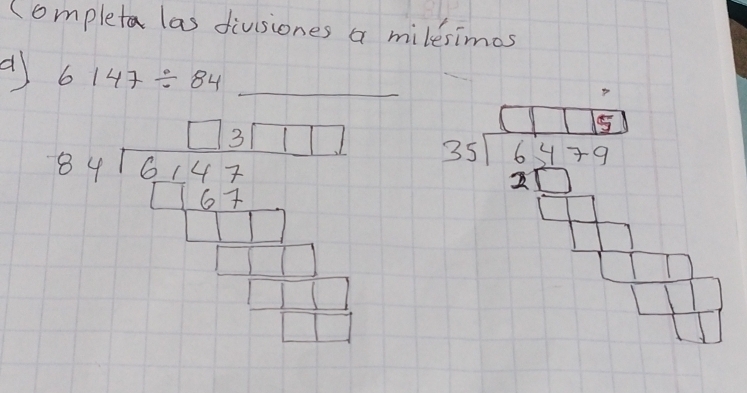 Completa las divisiones a milésimos
a) 6147 ÷ 84
3
84 6147
67
5
35 6479
2